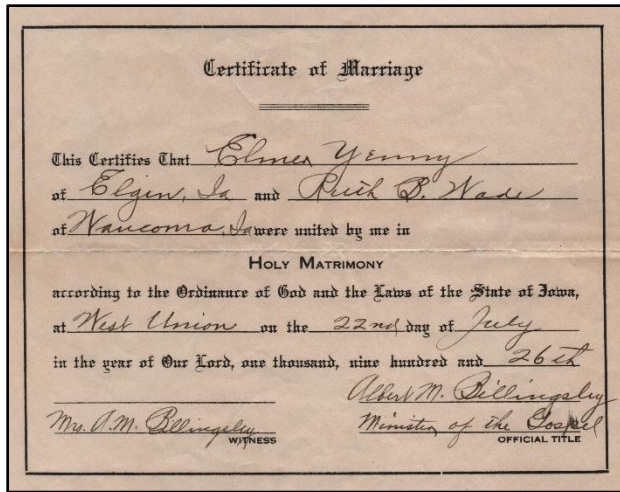 Certificate of Marriage
This Certifies That Elmer Yenny
of Elgin, Ia and Ruth B. Wade
of Waucoma, Ia were united by me in
HOLY MATRIMONY
according to the Ordinance of God and the Laws of the State of Iowa,
at West Union on the 22nd day of July
in the year of Our Lord, one thousand, nine hundred and 26th
Albert M. Billingsley
Mrs. A.M. Billingsley Minister of the Gospel
WITNESS OFFICIAL TITLE